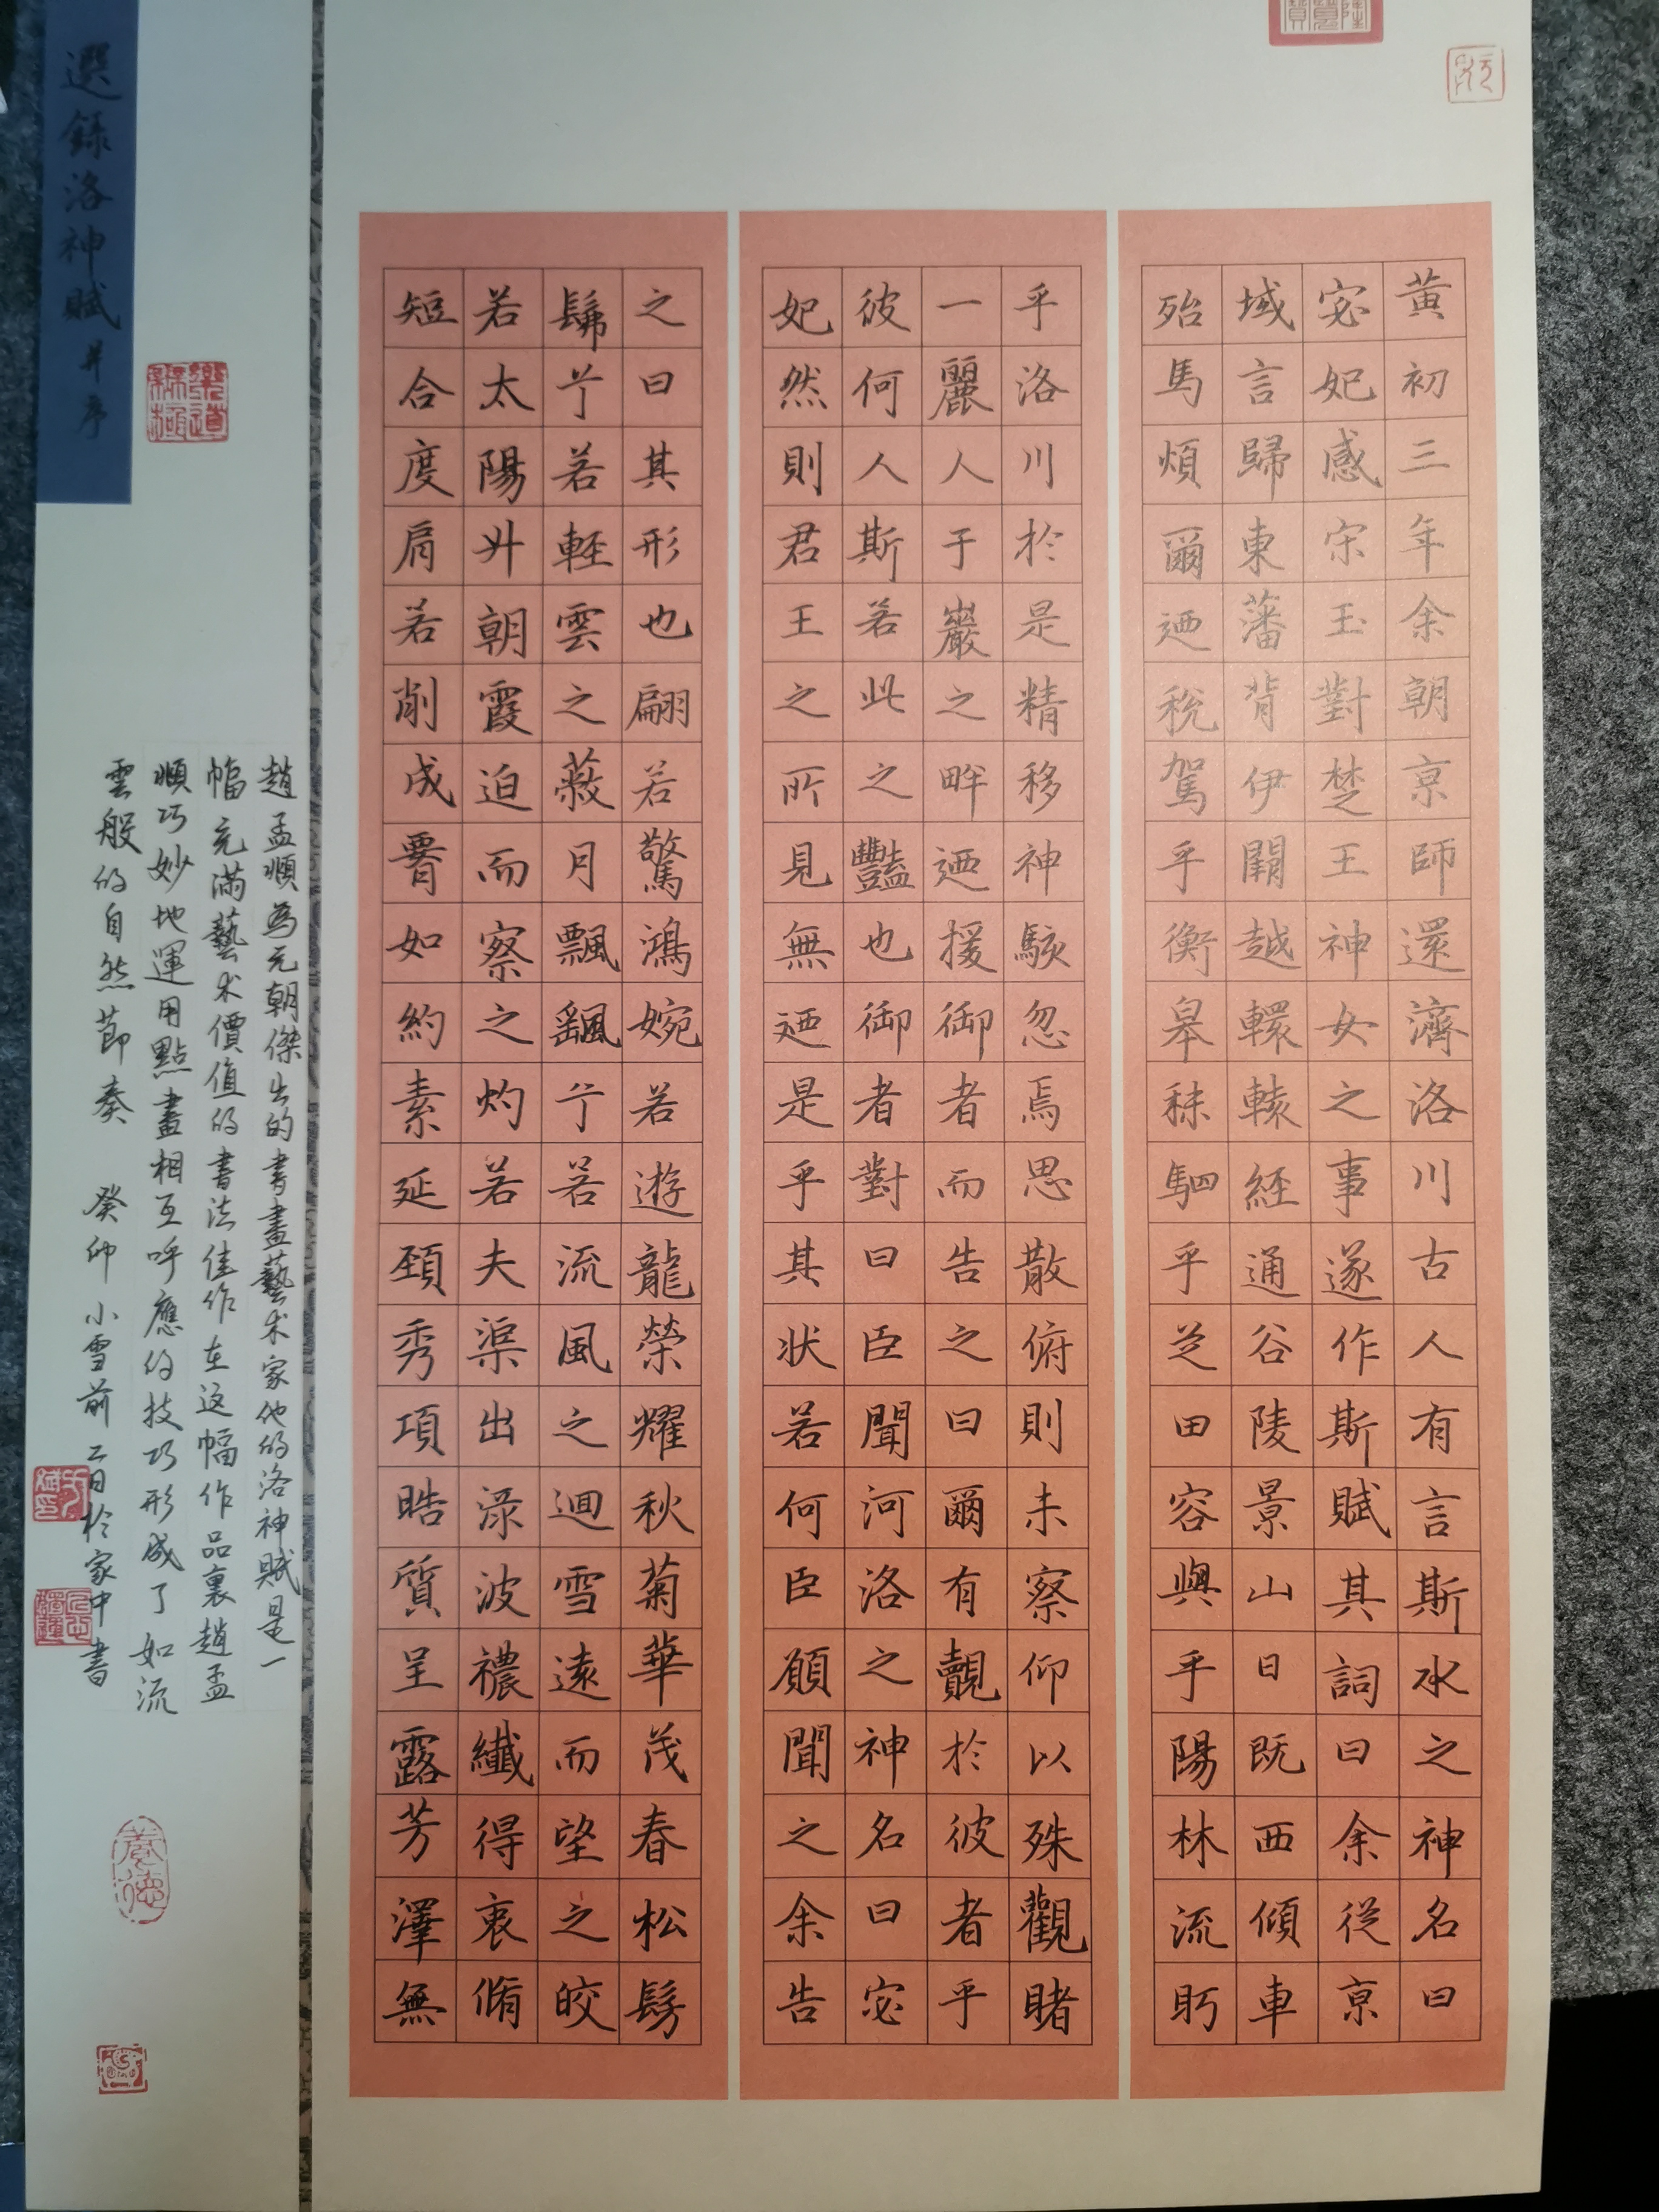 黃初三年余朝亰師還濟洛川古人有言斯水之神名曰
宓妃感宋玉對楚王神女之事遂作斯賦其詞曰余從亰
域言歸東藩背伊闕越轘轅經通谷陵景山日既西傾車
殆馬煩爾迺稅駕乎衡皋秣駟乎芝田容與乎陽林流眄
乎洛川於是精移神駭忽焉思散俯則未察仰以殊觀睹
一麗人于巖之畔迺援御者而告之曰爾有覿於彼者乎
彼何人斯若此之豔也御者對曰臣聞河洛之神名曰宓
妃然則君王之所見無迺是乎其狀若何臣願聞之余告
之曰其形也翩若驚鴻婉若遊龍榮耀秋菊華茂春松髣
髴兮若輕雲之蔽月飄颻兮若流風之迴雪遠而望之皎
若太陽升朝霞迫而察之灼若夫渠出淥波襛纖得衷脩
短合度肩若削成𦝫如約素延頸秀項皓質呈露芳澤無
趙孟頫為元朝傑出的書畫藝术家他的洛神賦是一
幅充滿藝术價值的書法佳作在这幅作品裏趙孟
頫巧妙地運用點畫相互呼應的技巧形成了如流
雲般的自然節奏 癸卯小雪前二日於家中書
選錄洛神賦并序
養德